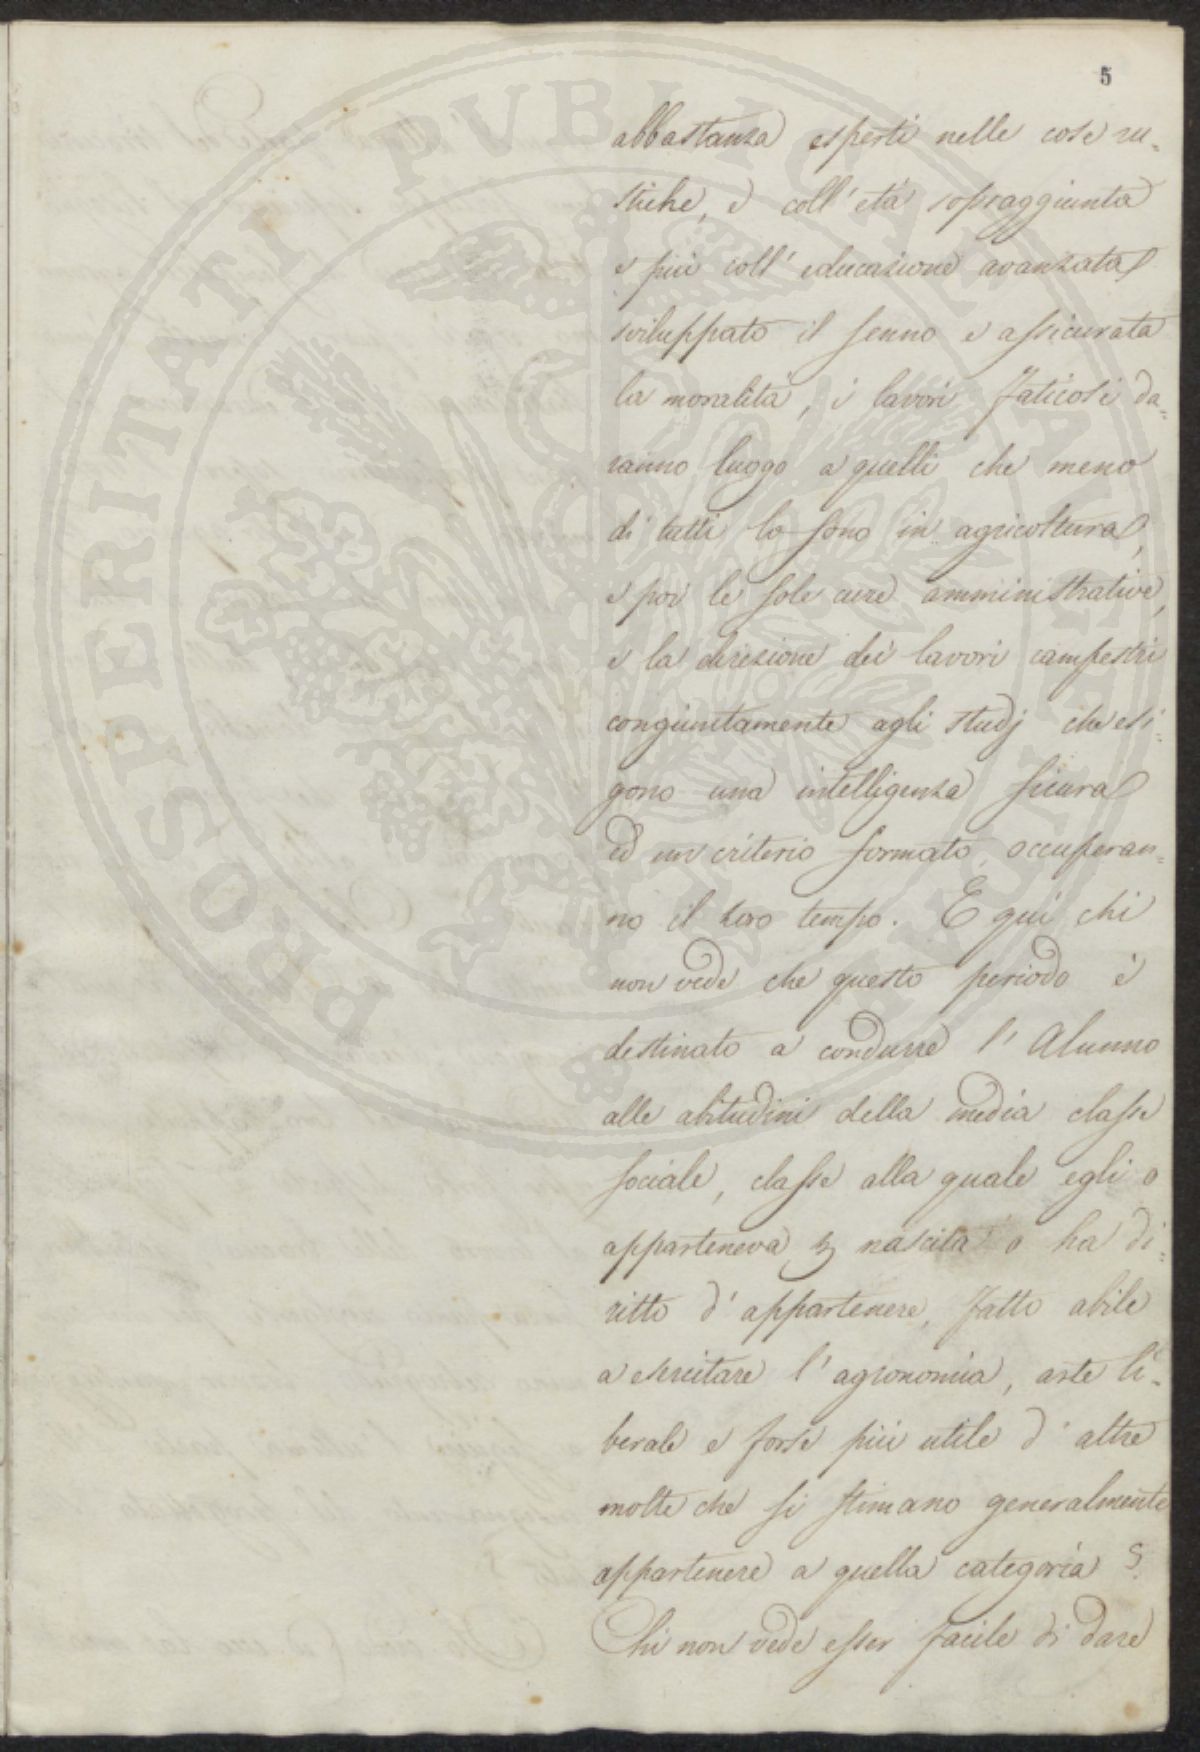 5
abbastanza esperti nelle cose ru-
stiche, e coll' età sopraggiunta
e più coll' educazione avanzata
sviluppato il senno e assicurata
la moralità, i lavori faticosi da-
ranno luogo a quelli che meno
di tutti lo sono in agricoltura,
e poi le sole cure amministrative,
e la direzione dei lavori campestri
congiuntamente agli studj che esi-
gono una intelligenza sicura
ed un criterio formato, occuperan-
no il loro tempo. E quì chi
non vede che questo periodo è
destinato a condurre l' Alunno
alle abitudini della media classe
sociale, classe alla quale egli o
apparteneva p nascita o ha di-
ritto d' appartenere, fatto abile
a esercitare l' agronomia, arte li-
berale e forse più utile d' altre
molte che si stimano generalmente
appartenere a quella categoria?
Chi non vede esser facile di dare
PROSPERITATI PVBLICAE AVGENDAE